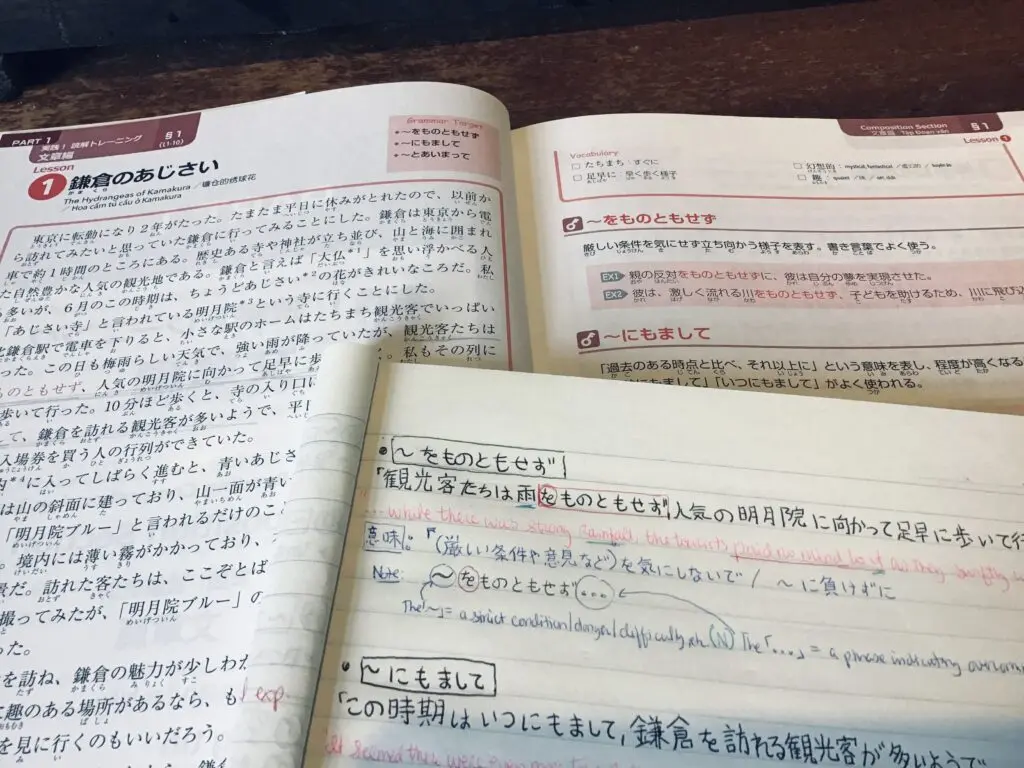 PART 1
実践！読解トレーニング
文章編
§1
(L1-10)
Grammar Target
• ～をものともせず
• ～にもまして
• ～とあいまって
Lesson
1 鎌倉のあじさい
The Hydrangeas of Kamakura／镰仓的绣球花
／Hoa cẩm tú cầu ở Kamakura
東京に転勤になり2年がたった。たまたま平日に休みがとれたので、以前か
ら訪れてみたいと思っていた鎌倉に行ってみることにした。鎌倉は東京から電
車で約1時間のところにある。歴史ある寺や神社が立ち並び、山と海に囲まれ
た自然豊かな人気の観光地である。鎌倉と言えば「大仏*1」を思い浮かべる人
も多いが、6月のこの時期は、ちょうどあじさい*2の花がきれいなころだ。私
「あじさい寺」と言われている明月院*3という寺に行くことにした。
北鎌倉駅で電車を下りると、小さな駅のホームはたちまち観光客でいっぱい
った。この日も梅雨らしい天気で、強い雨が降っていたが、観光客たちは
ものともせず、人気の明月院に向かって足早に歩
。私もその列に
歩いて行った。10分ほど歩くと、寺の入り口に
て、鎌倉を訪れる観光客が多いようで、平日
入場券を買う人の行列ができていた。
内*4に入ってしばらく進むと、青いあじさ
は山の斜面に建っており、山一面が青い
「明月院ブルー」と言われるだけのこ
。境内には薄い霧がかかっており、
景だ。訪れた客たちは、ここぞとば
撮ってみたが、「明月院ブルー」の
った。
を訪ね、鎌倉の魅力が少しわか
に趣のある場所があるなら、も
を見に行くのもいいだろう。
Composition Section
文章編
Tập Đoạn văn
§1
Lesson 1
Vocabulary
□ たちまち：すぐに
□ 足早に：早く歩く様子
□ 幻想的：mystical, fantastical
□ 趣：
～をものともせず
厳しい条件を気にせず立ち向かう様子を表す。書き言葉でよく使う。
EX1 親の反対をものともせずに、彼は自分の夢を実現させた。
EX2 彼は、激しく流れる川をものともせず、子どもを助けるため、川に飛び込
～にもまして
「過去のある時点と比べ、それ以上に」という意味を表し、程度が高くなる
にもまして」「いつにもまして」がよく使われる。
• ～をものともせず
「観光客たちは雨をものともせず人気の明月院に向かって足早に歩いて行
... while there was strong rainfall, the tourists paid no mind to it as they swiftly
意味：「(厳しい条件や意見など)を気にしないで / ～に負けずに
Note: ～をものともせず ...
The「～」= a strict condition/danger/difficulty, etc. (N) The「...」= a phrase indicating
• ～にもまして
「この時期はいつにもまして，鎌倉を訪れる観光客が多いようで
exp